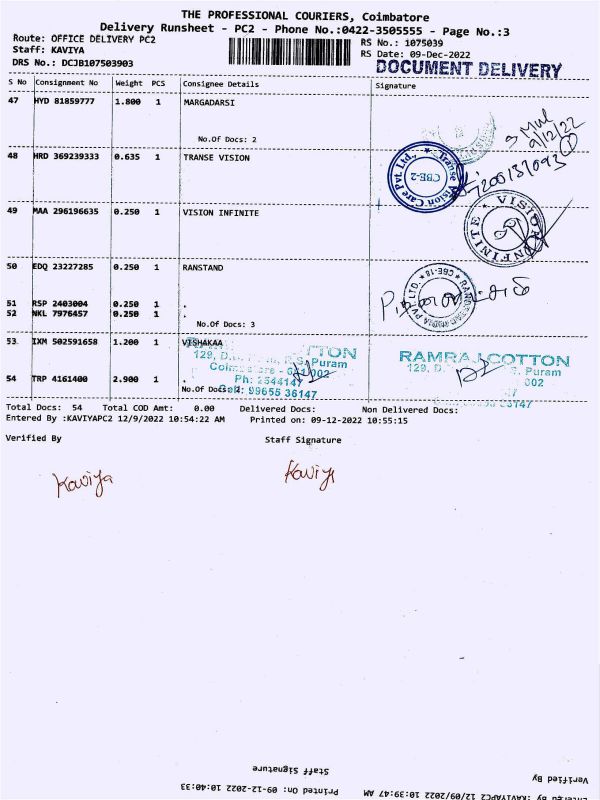 THE PROFESSIONAL COURIERS, Coimbatore
Delivery Runsheet - PC2 - Phone No.:0422-3505555 - Page No.:3
Route: OFFICE DELIVERY PC2
Staff: KAVIYA
DRS No.: DCJB107503903
RS No.: 1075039
RS Date: 09-Dec-2022
DOCUMENT DELIVERY
S No Consignment No Weight PCS Consignee Details Signature
47 HYD 81859777 1.800 1 MARGADARSI
No.Of Docs: 2
9/12/22
48 HRD 369239333 0.635 1 TRANSE VISION
Transe Vision Care Pvt. Ltd.,
CBE-2
49 MAA 296196635 0.250 1 VISION INFINITE
VISION INFINITE
50 EDQ 23227285 0.250 1 RANSTAND
CBE-18
51 RSP 2403004 0.250 1 .
52 NKL 7976457 0.250 1 .
No.Of Docs: 3
53 IXM 502591658 1.200 1 VISHAKAA
TTON
129, D. R.S. Puram
Coimbatore - 641 002
Ph: 2544147
Cell: 99655 36147
RAMRAJ COTTON
129, D. S. Puram
002
36147
54 TRP 4161400 2.900 1 .
No.Of Docs: 2
Total Docs: 54 Total COD Amt: 0.00 Delivered Docs: Non Delivered Docs:
Entered By :KAVIYAPC2 12/9/2022 10:54:22 AM Printed on: 09-12-2022 10:55:15
Verified By Staff Signature
Kaviya Kaviya
Staff Signature Verified By
Printed on: 09-12-2022 10:40:33 Entered by :KAVIYAPC2 12/09/2022 10:39:47 AM